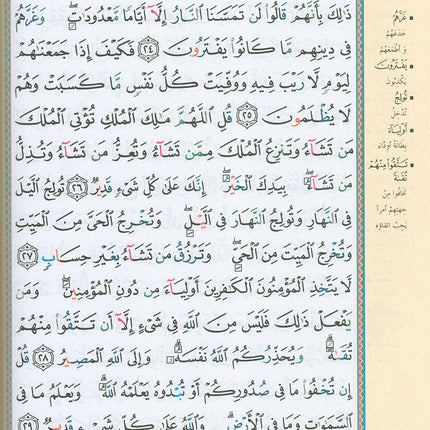 ذَٰلِكَ بِأَنَّهُمْ قَالُوا۟ لَن تَمَسَّنَا ٱلنَّارُ إِلَّآ أَيَّامًا مَّعْدُودَٰتٍ ۖ وَغَرَّهُمْ
فِى دِينِهِم مَّا كَانُوا۟ يَفْتَرُونَ ﴿٢٤﴾ فَكَيْفَ إِذَا جَمَعْنَٰهُمْ
لِيَوْمٍ لَّا رَيْبَ فِيهِ وَوُفِّيَتْ كُلُّ نَفْسٍ مَّا كَسَبَتْ وَهُمْ
لَا يُظْلَمُونَ ﴿٢٥﴾ قُلِ ٱللَّهُمَّ مَٰلِكَ ٱلْمُلْكِ تُؤْتِى ٱلْمُلْكَ
مَن تَشَآءُ وَتَنزِعُ ٱلْمُلْكَ مِمَّن تَشَآءُ وَتُعِزُّ مَن تَشَآءُ وَتُذِلُّ
مَن تَشَآءُ ۖ بِيَدِكَ ٱلْخَيْرُ ۖ إِنَّكَ عَلَىٰ كُلِّ شَىْءٍ قَدِيرٌ ﴿٢٦﴾ تُولِجُ ٱلَّيْلَ
فِى ٱلنَّهَارِ وَتُولِجُ ٱلنَّهَارَ فِى ٱلَّيْلِ ۖ وَتُخْرِجُ ٱلْحَىَّ مِنَ ٱلْمَيِّتِ
وَتُخْرِجُ ٱلْمَيِّتَ مِنَ ٱلْحَىِّ ۖ وَتَرْزُقُ مَن تَشَآءُ بِغَيْرِ حِسَابٍ ﴿٢٧﴾
لَّا يَتَّخِذِ ٱلْمُؤْمِنُونَ ٱلْكَٰفِرِينَ أَوْلِيَآءَ مِن دُونِ ٱلْمُؤْمِنِينَ ۖ وَمَن
يَفْعَلْ ذَٰلِكَ فَلَيْسَ مِنَ ٱللَّهِ فِى شَىْءٍ إِلَّآ أَن تَتَّقُوا۟ مِنْهُمْ
تُقَىٰةً ۗ وَيُحَذِّرُكُمُ ٱللَّهُ نَفْسَهُۥ ۗ وَإِلَى ٱللَّهِ ٱلْمَصِيرُ ﴿٢٨﴾ قُلْ
إِن تُخْفُوا۟ مَا فِى صُدُورِكُمْ أَوْ تُبْدُوهُ يَعْلَمْهُ ٱللَّهُ ۗ وَيَعْلَمُ مَا فِى
ٱلسَّمَٰوَٰتِ وَمَا فِى ٱلْأَرْضِ ۗ وَٱللَّهُ عَلَىٰ كُلِّ شَىْءٍ قَدِيرٌ ﴿٢٩﴾
▪ غَرَّهُمْ
خَدَعَهُمْ
وَ أَطْمَعَهُمْ
▪ يَفْتَرُونَ
يَكْذِبُونَ
▪ تُولِجُ
تُدْخِلُ
▪ أَوْلِيَآءَ
بِطَانَةً أَوِدَّاءَ
▪ تَتَّقُوا۟ مِنْهُمْ
تُقَىٰةً
تَخَافُوا مِنْ
جِهَتِهِمْ أَمْراً
يَجِبُ اتِّقَاؤُه